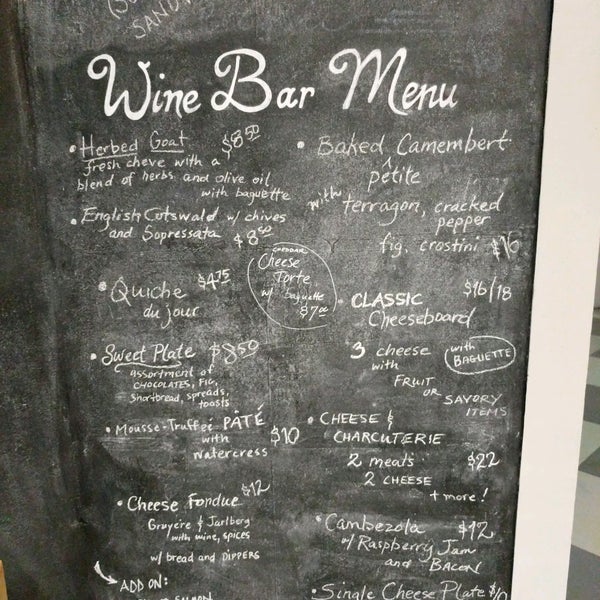 SANDW
Wine Bar Menu
• Herbed Goat $8.50
fresh cheve with a
blend of herbs and olive oil
with baguette
• English Cotswald w/ chives
and Sopressata $8.00
• Quiche $4.75
du jour
CHEDDAR
Cheese
Torte
w/ baguette
$7.00
• Sweet Plate $8.50
assortment of
CHOCOLATES, FIG,
Shortbread, spreads,
toasts
• Mousse-Truffel PÂTÉ
with $10
watercress
• Cheese Fondue $12
Gruyere & Jarlberg
with wine, spices
w/ bread and DIPPERS
ADD ON:
• Baked Camembert
pêtite
with terragon, cracked
pepper
fig, crostini $16
• CLASSIC $16/18
Cheeseboard
3 cheese with BAGUETTE
with
FRUIT
OR SAVORY
ITEMS
• CHEESE &
CHARCUTERIE
2 meats $22
2 CHEESE
+ more!
• Cambezola $12
w/ Raspberry Jam
and BACON
• Single Cheese Plate